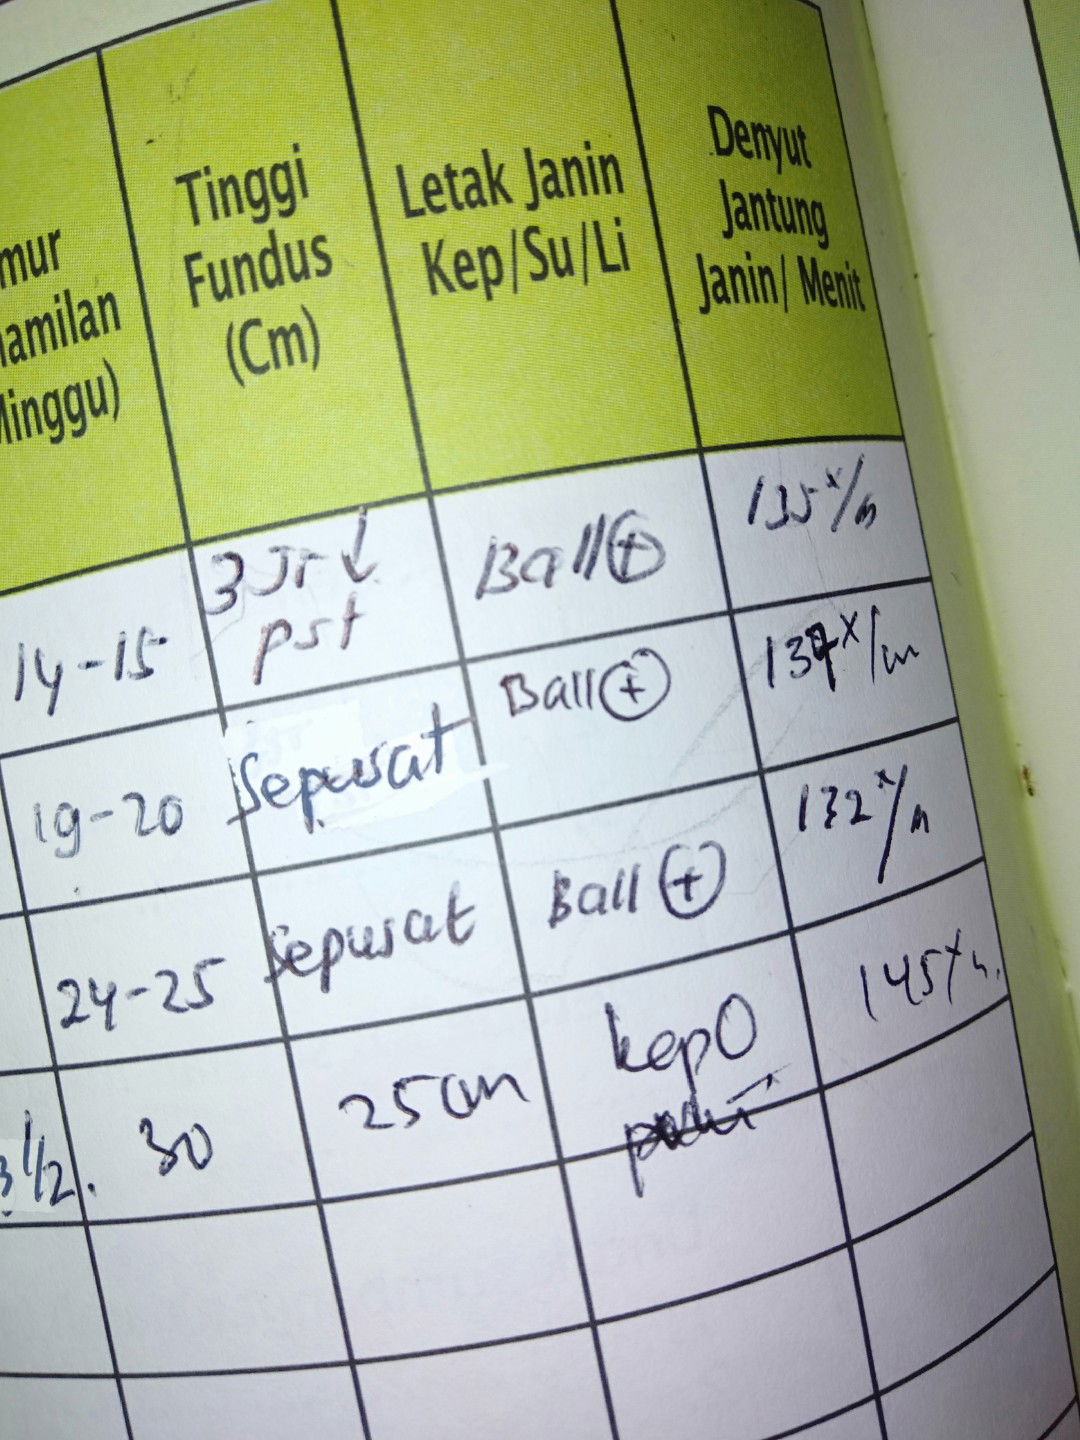 mur
amilan
inggu)
Tinggi
Fundus
(Cm)
Letak Janin
Kep/Su/Li
Denyut
Jantung
Janin/ Menit
14-15
3 Jr ↓
pst
Ball (+)
135 x/m
19-20
Sepusat
Ball (+)
137 x/m
24-25
Sepusat
Ball (+)
132 x/m
3 1/2.
30
25 cm
kep
145 x/m.